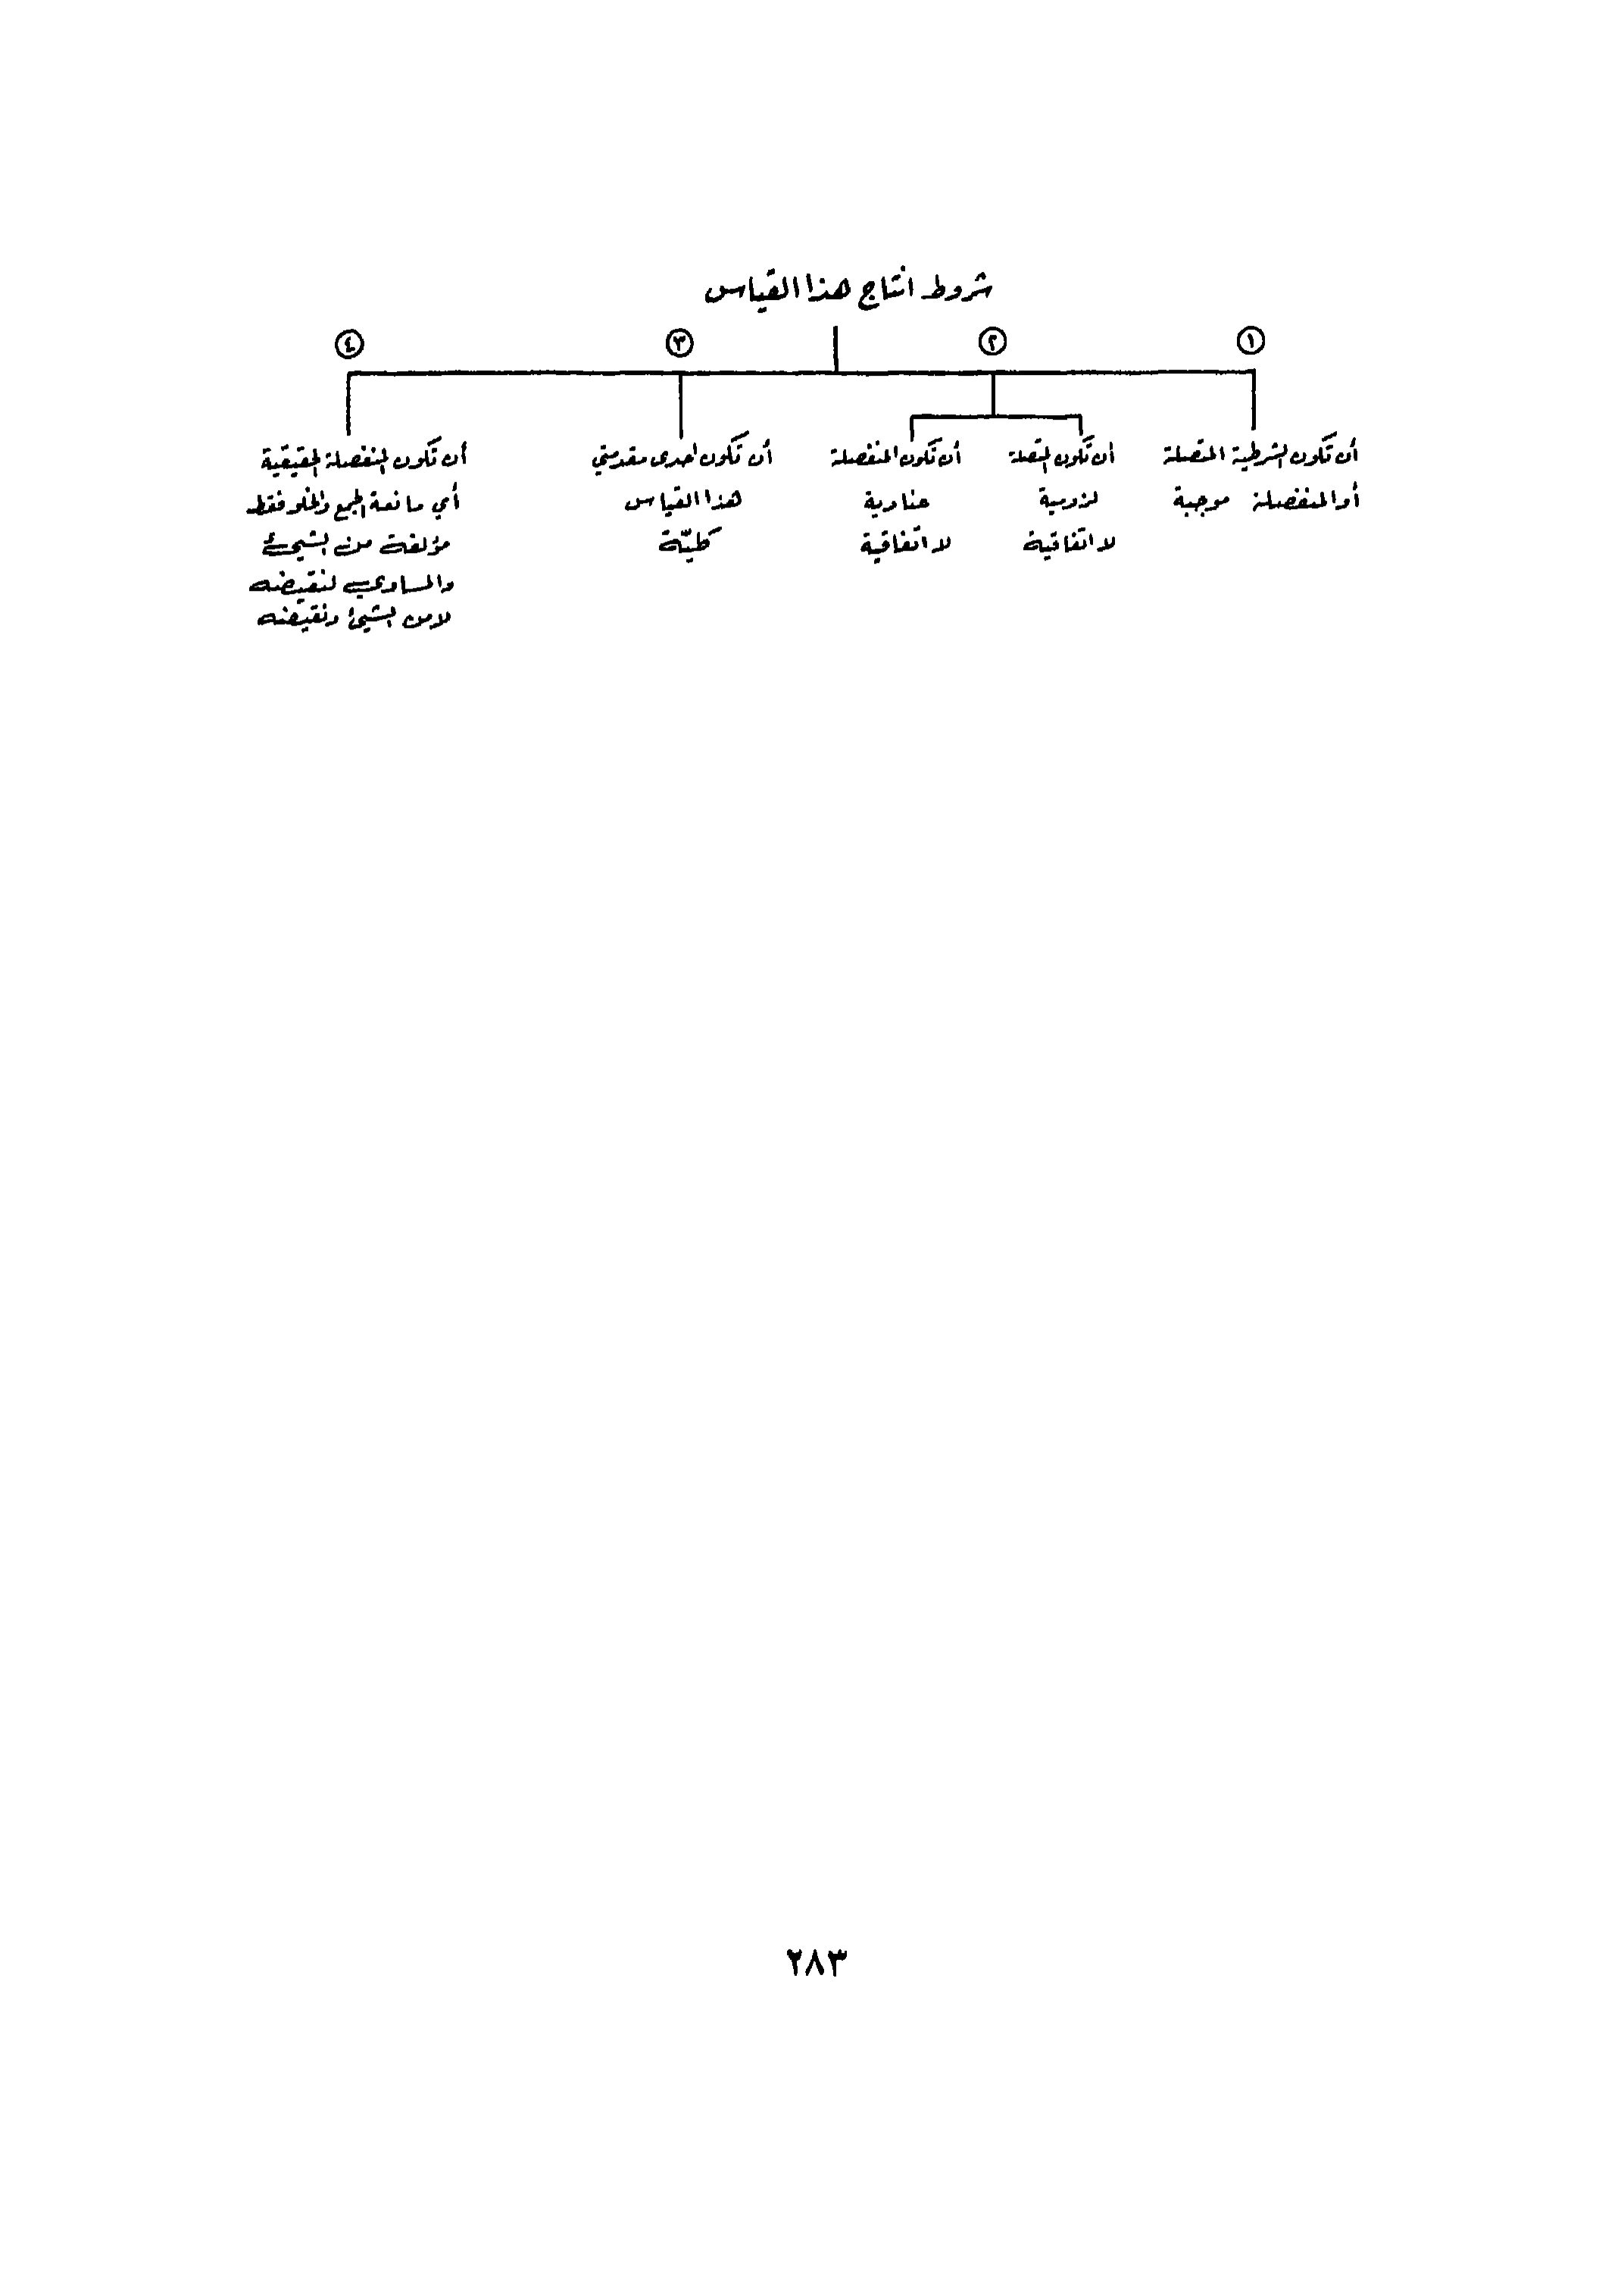 شروط انتاج هذا القياس
١
أن تكون الشرطية المتصلة
أو المنفصلة موجبة
٢
أن تكون المتصلة
لزومية
لا اتفاقية
أن تكون المنفصلة
عنادية
لا اتفاقية
٣
أن تكون احدى مقدمتي
هذا القياس
كليّة
٤
أن تكون المنفصلة الحقيقية
أي مانعة الجمع والخلو فقط
مؤلفة من الشيئ
والمساوي لنقيضه
لا من الشيئ ونقيضه
٢٨٣